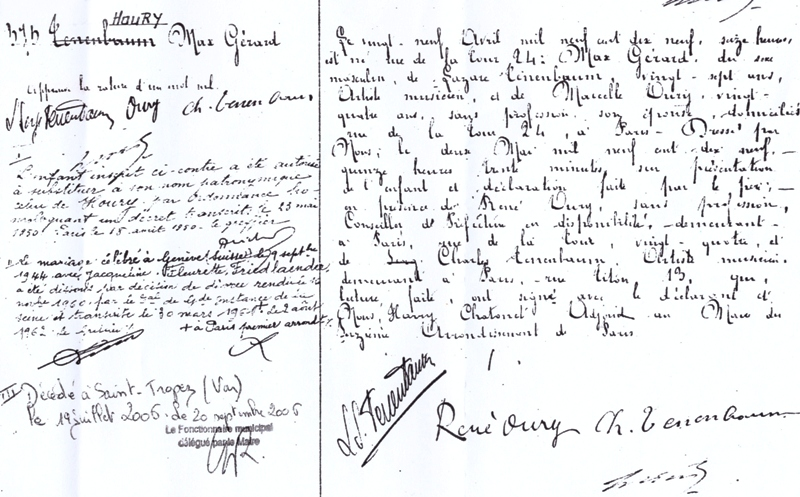 HOURY
Tenenbaum Max Gérard
Approuvé la rature d'un mot nul.
Tenenbaum Oury Ch. Tenenbaum
I L'enfant inscrit ci-contre a été autorisé
à substituer à son nom patronymique
celui de "Houry", par Ordonnance
un décret transcrit le 23 mai
1950. Paris le 15 août 1950. le greffier
II le mariage célébré à Genève (Suisse) le 9 septbre
1944 avec Jacqueline, Fleurette, Friedlaender,
a été dissous par décision de divorce rendue le
1960 par le de Gde Instance de la
Seine et transcrite le 30 mars 1961. Le 2 août
1962. le greffier
+ à Paris premier arrondt
III Décédé à Saint-Tropez (Var)
le 19 juillet 2006. de 20 septembre 2006
Le Fonctionnaire municipal
délégué par le Maire
Le vingt-neuf Avril mil neuf cent dix neuf, seize heures,
est né rue de la Tour 24: Max Gérard, du sexe
masculin, de Lazare Tenenbaum, vingt-sept ans,
Artiste musicien, et de Marcelle Oury, vingt-
quatre ans, sans profession, son épouse, domiciliés
rue de la Tour 24, à Paris- Dressé par
Nous, le deux Mai mil neuf cent dix neuf, -
quinze heures trente minutes, sur présentation
de l'enfant et déclaration faite par le père; -
en présence de René Oury, sans profession,
Conseiller de Préfecture en disponibilité, demeurant -
à Paris, rue de la Tour, vingt-quatre, et
de Charles Tenenbaum, Artiste musicien,
demeurant à Paris, rue Titon 13, qui,
lecture faite, ont signé avec le déclarant et
Nous, Harry Chatenet Adjoint au Maire du
Seizième Arrondissement de Paris
Tenenbaum
René Oury Ch. Tenenbaum